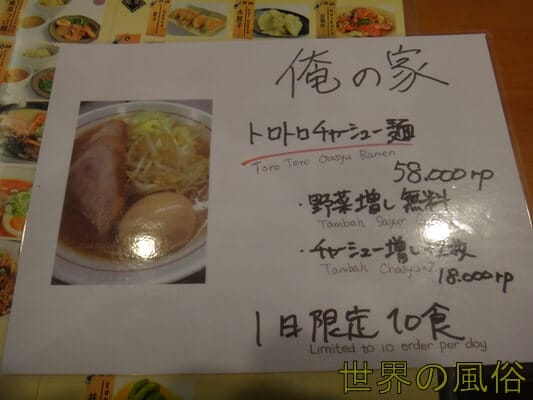 俺の家
トロトロチャーシュー麺
Toro Toro Chasyu Ramen
58.000rp
・野菜増し無料
Tambah Sayur
・チャーシュー増し
Tambah Chasyu×2
18.000rp
1日限定10食
Limited to 10 order per day
世界の風俗